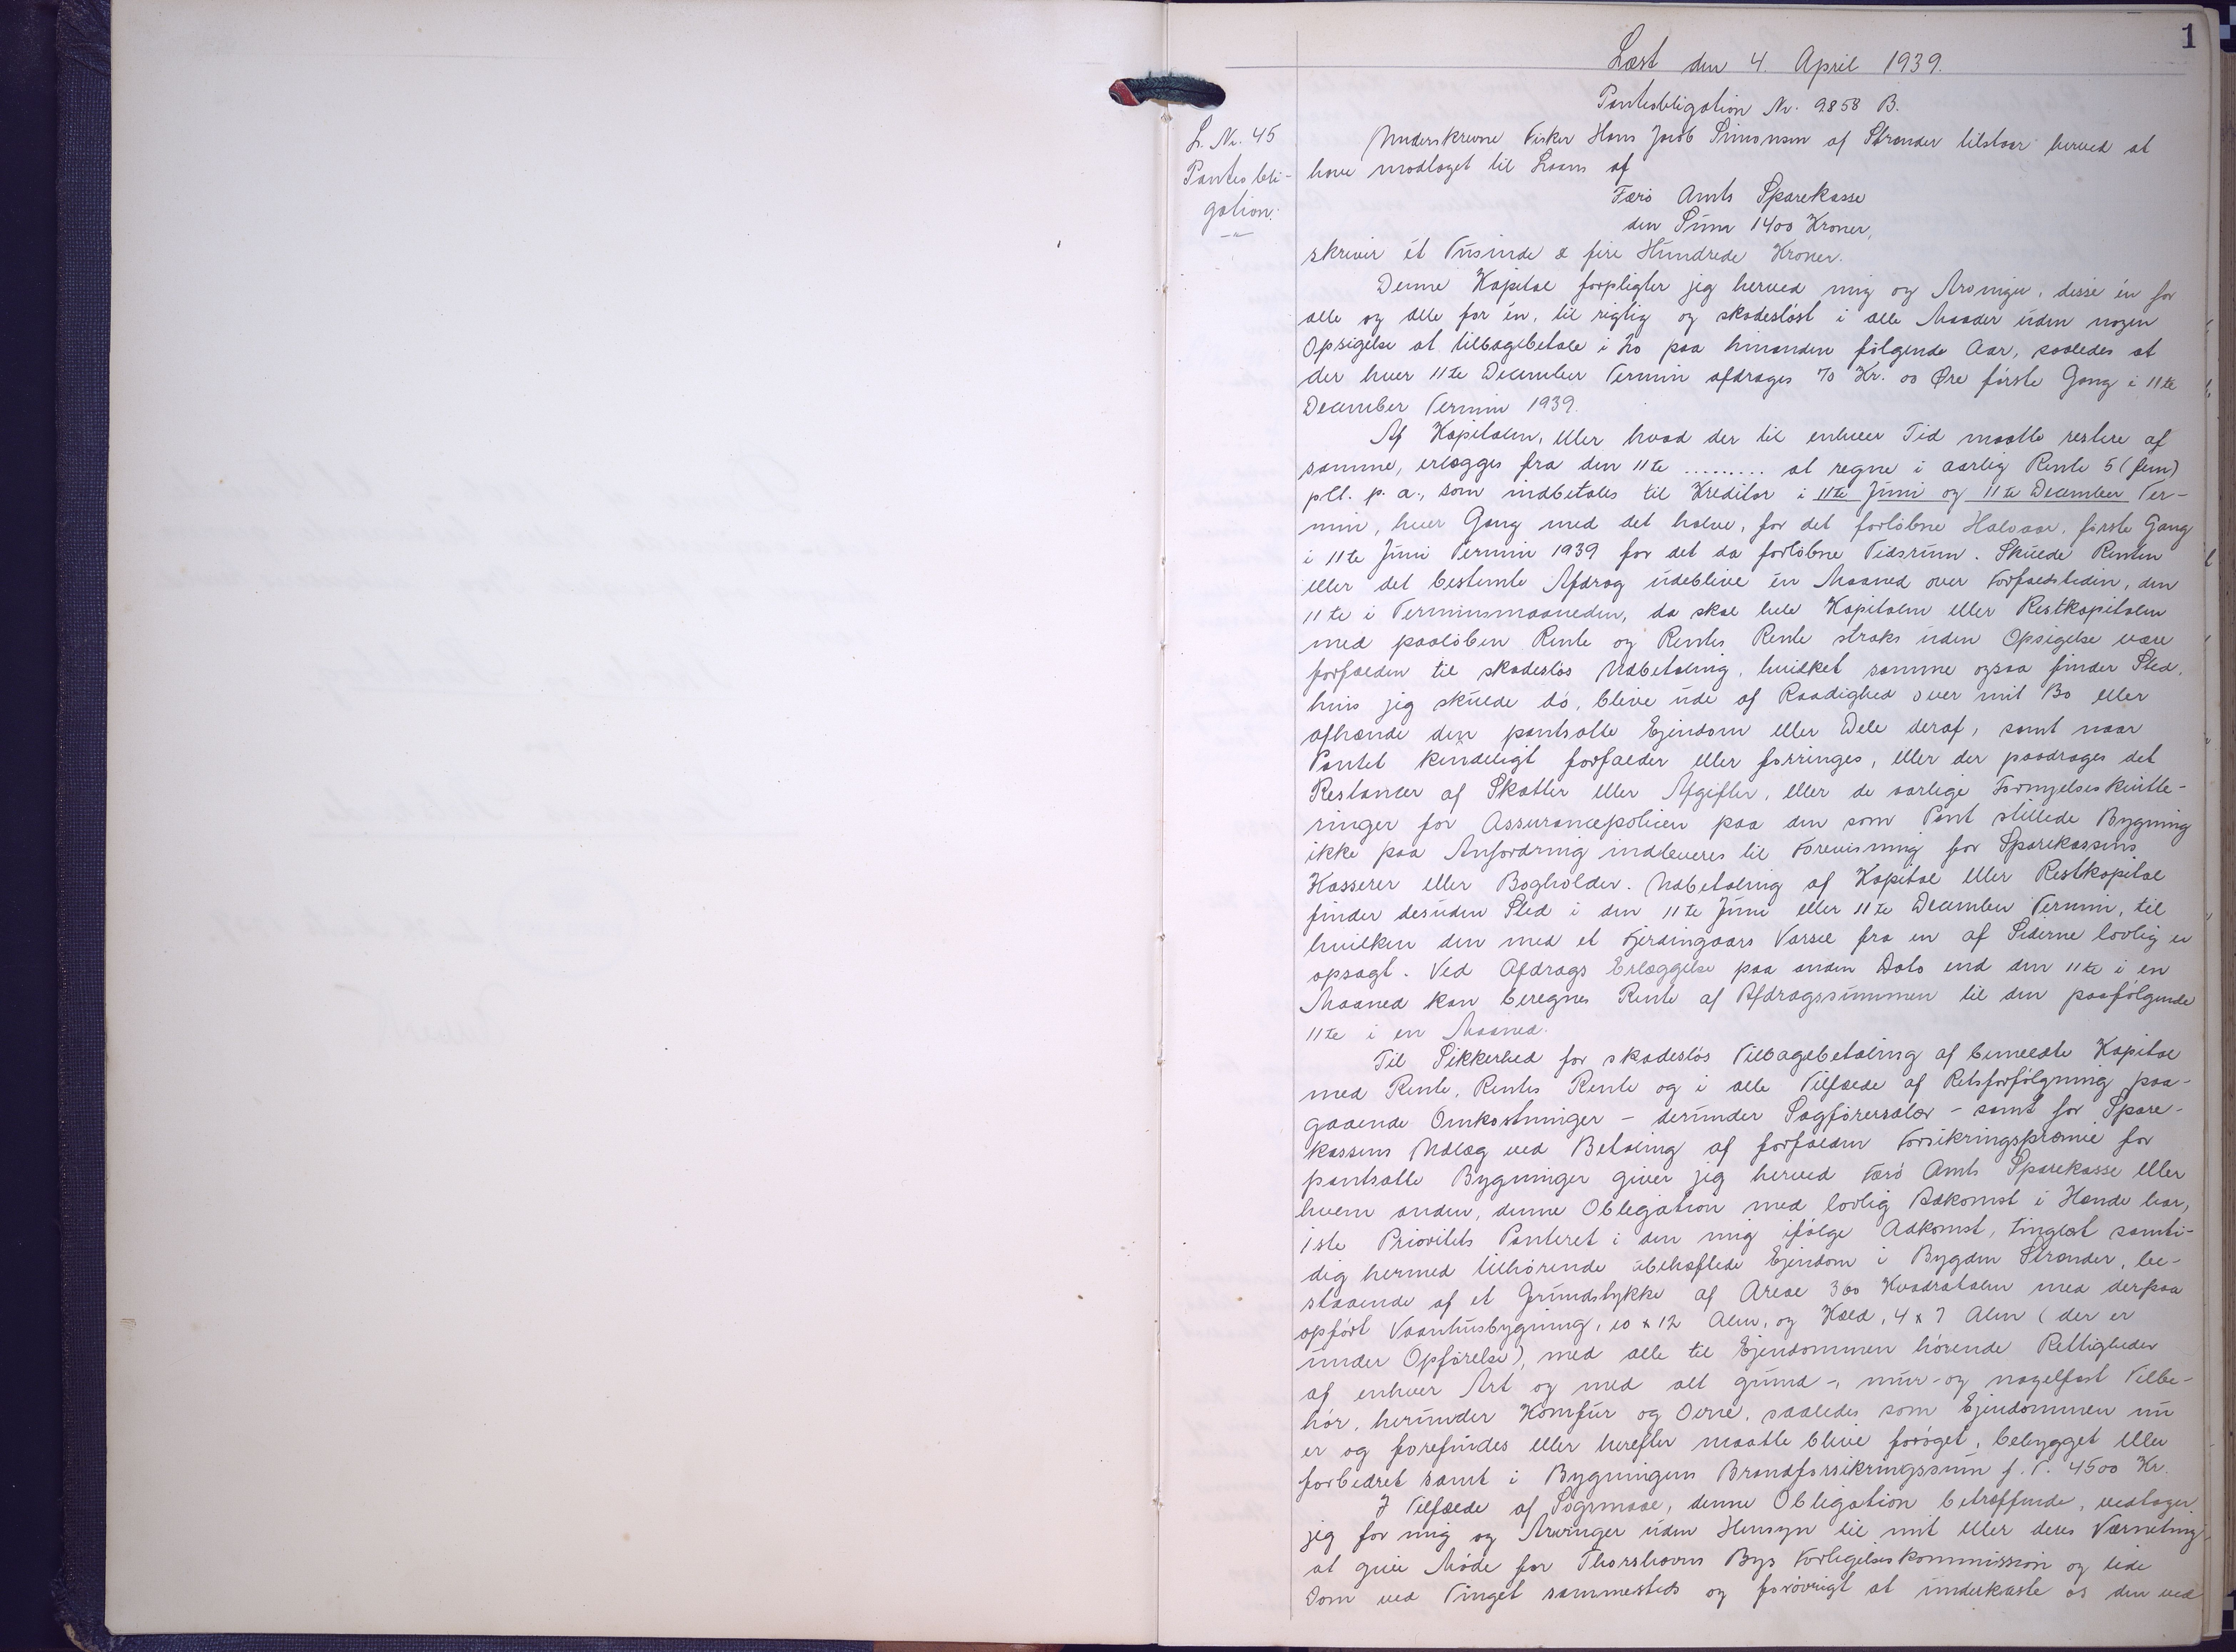 1
Læst den 4. April 1939.
Panteobligation Nr. 2858 B.
L. Nr. 45
Panteobli-
gation.
Underskrevne Fisker Hans Jacob Simonsen af Strænder tilstaar herved at
have modtaget til Laans af
Færö Amts Sparekasse
den Sum 1400 Kroner,
skriver ét Tusinde & fire Hundrede Kroner.
Denne Kapital forpligter jeg herved mig og Arvinger, disse én for
alle og alle for én, til rigtig og skadesløst i alle Maader uden nogen
Opsigelse at tilbagebetale i 20 paa hinanden følgende Aar, saaledes at
der hver 11te December Termin afdrages 70 Kr. 00 Øre første Gang i 11te
December Termin 1939.
Af Kapitalen, eller hvad der til enhver Tid maatte restere af
samme, erlægges fra den 11te ......... at regne i aarlig Rente 5 (fem)
pCt. p. a., som indbetales til Kreditor i 11te Juni og 11te December Ter-
min, hver Gang med det halve, for det forløbne Halvaar, første Gang
i 11te Juni Termin 1939 for det da forløbne Tidsrum. Skulde Renten
eller det bestemte Afdrag udeblive én Maaned over Forfaldstiden, den
11te i Terminsmaaneden, da skal hele Kapitalen eller Restkapitalen
med paaløben Rente og Rentes Rente straks uden Opsigelse være
forfalden til skadesløs Udbetaling, hvilket samme ogsaa finder Sted,
hvis jeg skulde dø, blive ude af Raadighed over mit Bo eller
afhænde den pantsatte Ejendom eller Dele deraf, samt naar
Pantet kendeligt forfalder eller forringes, eller der paadrages det
Restancer af Skatter eller Afgifter, eller de aarlige Fornyelseskvitte-
ringer for Assurancepolicen paa den som Pant stillede Bygning
ikke paa Anfordring indleveres til Forevisning for Sparekassens
Kasserer eller Bogholder. Udbetaling af Kapital eller Restkapital
finder desuden Sted i den 11te Juni eller 11te December Termin, til
hvilken den med et Fjerdingaars Varsel fra en af Siderne lovlig er
opsagt. Ved Afdrags Erlæggelse paa anden Dato end den 11te i en
Maaned kan beregnes Rente af Afdragssummen til den paafølgende
11te i en Maaned.
Til Sikkerhed for skadesløs Tilbagebetaling af bemeldte Kapital
med Rente, Rentes Rente og i alle Tilfælde af Retsforfølgning paa-
gaaende Omkostninger - derunder Sagførersalær - samt for Spare-
kassens Udlæg ved Betaling af forfalden Forsikringspræmie for
pantsatte Bygninger giver jeg herved Færö Amts Sparekasse eller
hvem anden, denne Obligation med lovlig Adkomst i Hænde har,
1ste Prioritets Panteret i den mig ifølge Adkomst, tinglæst samti-
dig hermed tilhørende ubehæftede Ejendom i Bygden Strænder, be-
staaende af et Grundstykke af Areal 300 Kvadratalen med derpaa
opført Vaanhusbygning, 10 x 12 Alen, og Hæld, 4 x 7 Alen (der er
under Opførelse), med alle til Ejendommen hørende Rettigheder
af enhver Art og med alt grund-, mur- og nagelfast Tilbe-
hør, herunder Komfur og Ovne, saaledes som Ejendommen nu
er og forefindes eller herefter maatte blive forøget, bebygget eller
forbedret samt i Bygningens Brandforsikringssum f. T. 4500 Kr.
I Tilfælde af Søgsmaal, denne Obligation betræffende, vedtager
jeg for mig og Arvinger uden Hensyn til mit eller deres Værneting,
at give Møde for Thorshavns Bys Forligelseskommission og lide
Dom ved Tinget sammesteds og forøvrigt at underkaste os den ved